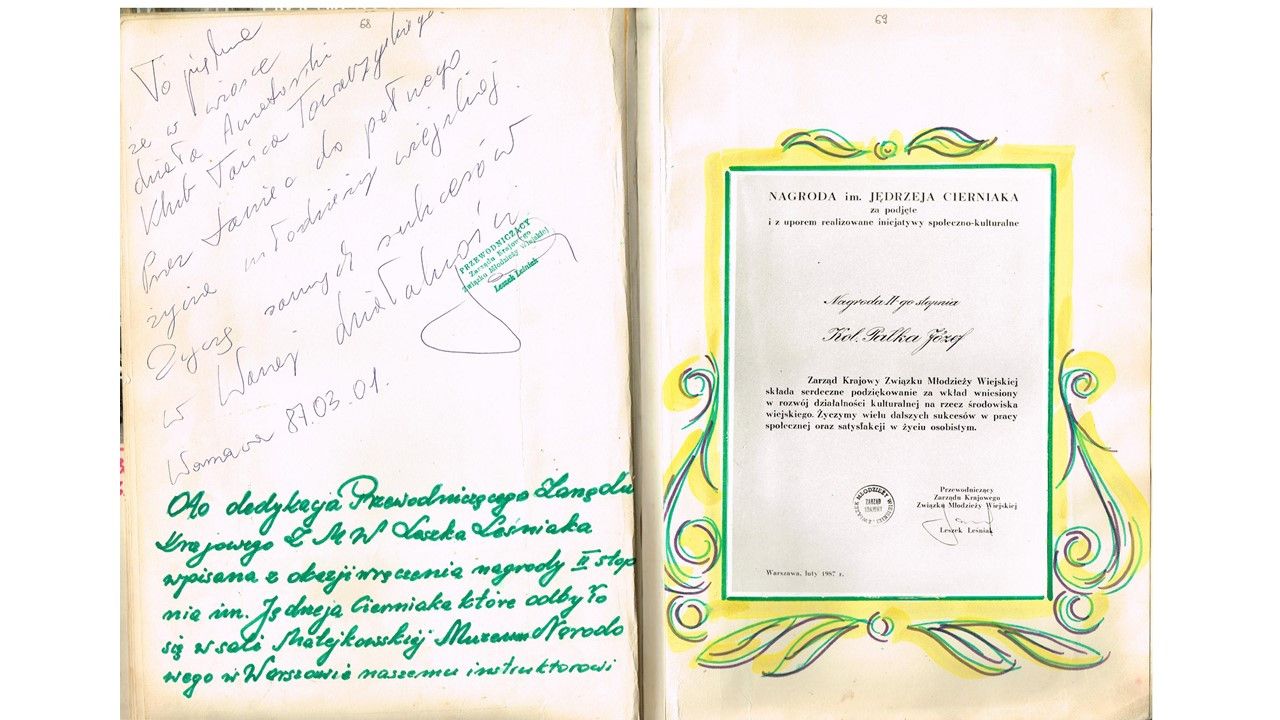 68
To piękne
że w wiosce
działa Amatorski
Klub Tańca Towarzyskiego.
Przez taniec do pełnego
życia młodzieży wiejskiej.
Życzę samych sukcesów
w Waszej działalności
Warszawa 87.03.01.
PRZEWODNICZĄCY
Zarządu Krajowego
Związku Młodzieży Wiejskiej
Leszek Leśniak
Oto dedykacja Przewodniczącego Zarządu
Krajowego Z M W Leszka Leśniaka
wpisana z okazji wręczenia nagrody II stop
nia im. Jędrzeja Cierniaka które odbyło
się w sali Matejkowskiej Muzeum Narodo
wego w Warszawie naszemu instruktorowi
69
NAGRODA im. JĘDRZEJA CIERNIAKA
za podjęte
i z uporem realizowane inicjatywy społeczno-kulturalne
Nagroda II-go stopnia
Kol. Pałka Józef
Zarząd Krajowy Związku Młodzieży Wiejskiej
składa serdeczne podziękowanie za wkład wniesiony
w rozwój działalności kulturalnej na rzecz środowiska
wiejskiego. Życzymy wielu dalszych sukcesów w pracy
społecznej oraz satysfakcji w życiu osobistym.
ZWIĄZEK MŁODZIEŻY WIEJSKIEJ
ZARZĄD
KRAJOWY
Przewodniczący
Zarządu Krajowego
Związku Młodzieży Wiejskiej
Leszek Leśniak
Warszawa, luty 1987 r.